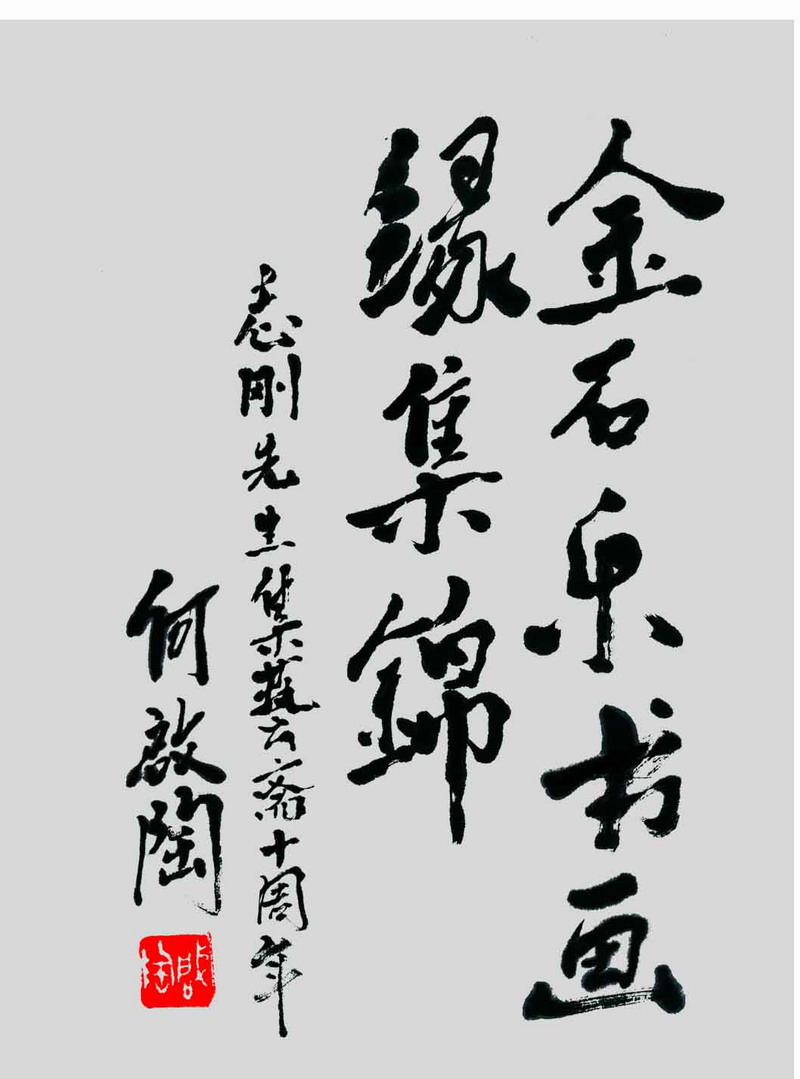 金石乐书画
缘集锦
志刚先生集艺斋十周年
何啟陶
啟陶